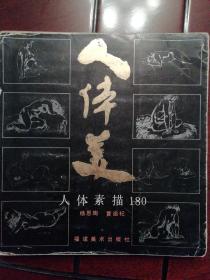 人体美
人体素描180
杨思陶 曹国昌
福建美术出版社